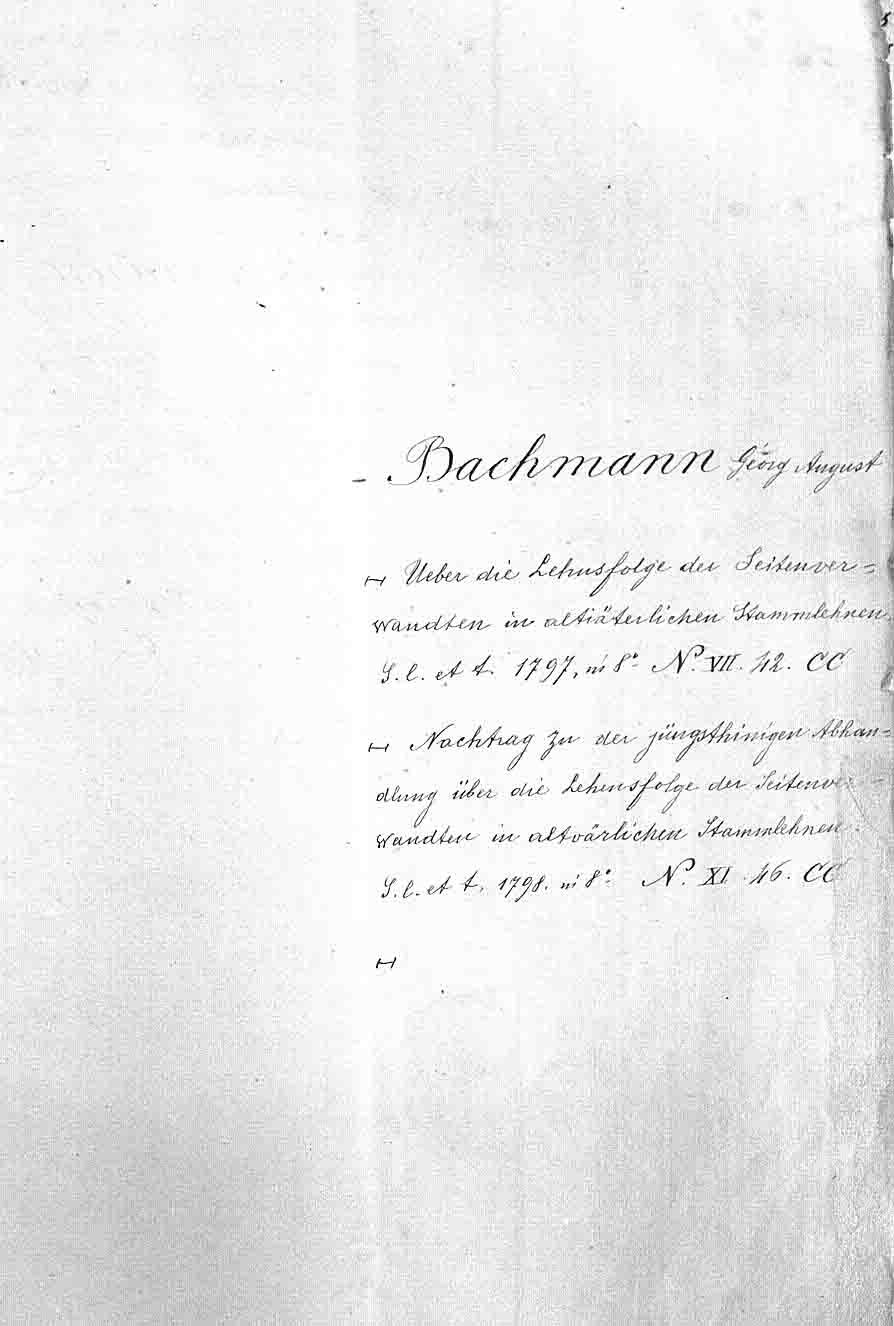 - Bachmann Georg August
Ueber die Lehnsfolge der Seitenver=
wandten in altiäterlichen Stammlehnen
S. l. et t. 1797, in 8° N. VII. 42. CC
Nachtrag zu der jüngsthinigen Abhan=
dlung über die Lehensfolge der Seitenver=
wandten in altvärlichen Stammlehnen.
S. l. et t. 1798. in 8° N. XI. 46. CC